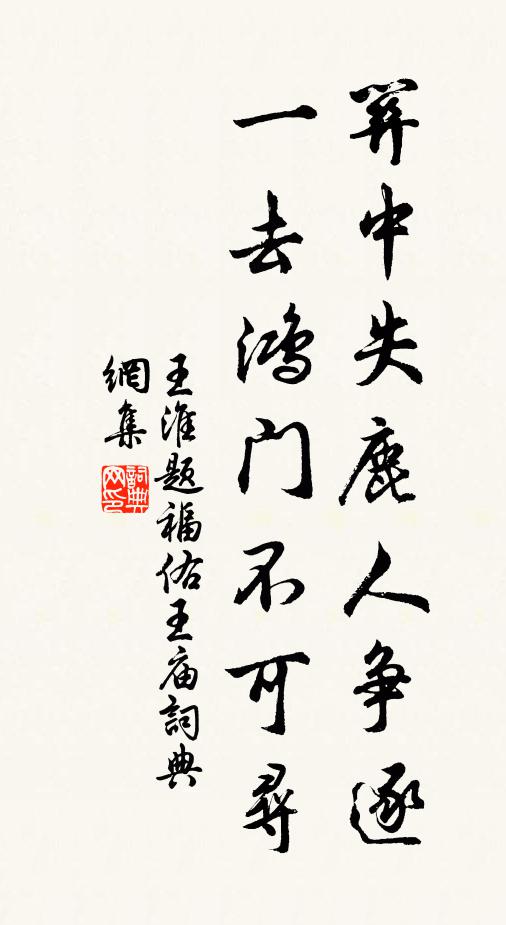 關中失鹿人争逐
一去鴻门不可尋
王淮题福佑王庙詞典
網集
詞典
网印